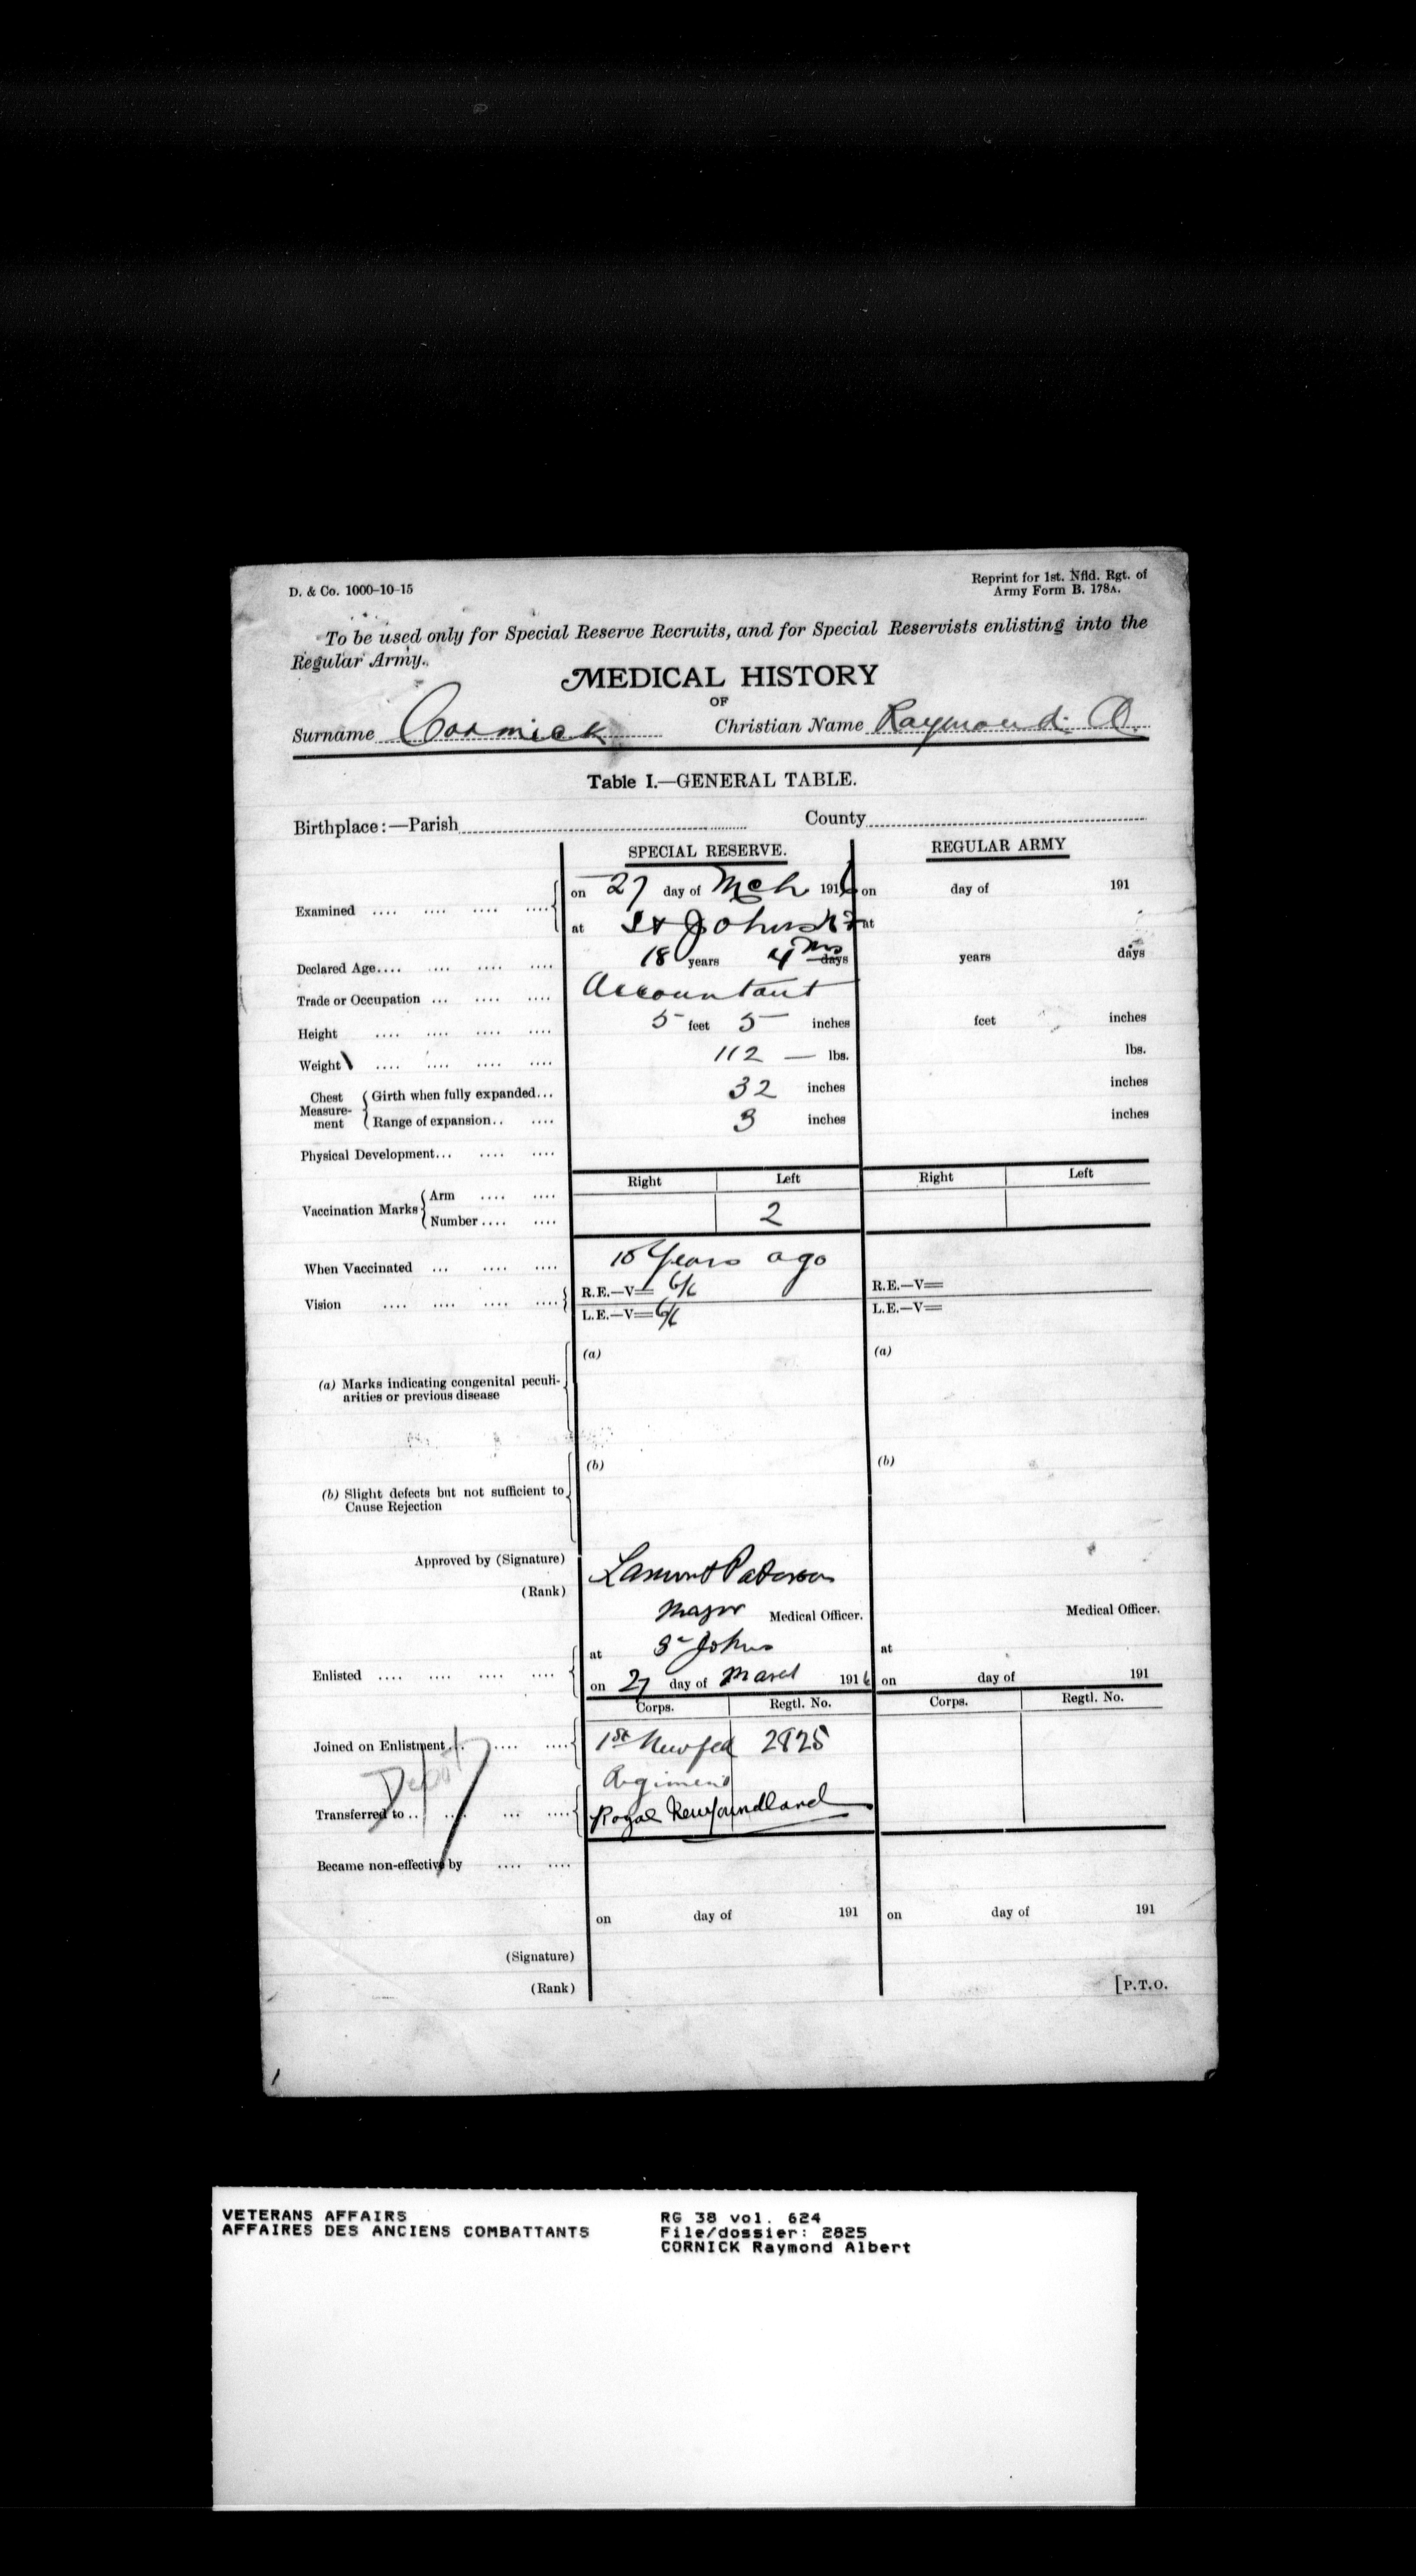 D. & Co. 1000-10-15
Reprint for 1st. Nfld. Rgt. of
Army Form B. 178A.
To be used only for Special Reserve Recruits, and for Special Reservists enlisting into the
Regular Army.
MEDICAL HISTORY
OF
Surname Cornick Christian Name Raymond A.
Table I.—GENERAL TABLE.
Birthplace:—Parish County
SPECIAL RESERVE. REGULAR ARMY
Examined .... .... .... .... on 27 day of Mch 1916 on day of 191
at St Johns NF at
Declared Age.... .... .... .... 18 years 4 mos days years days
Trade or Occupation ... .... .... Accountant
Height .... .... .... .... 5 feet 5 inches feet inches
Weight .... .... .... .... 112 — lbs. lbs.
Chest Measurement Girth when fully expanded... 32 inches inches
Range of expansion.. .... 3 inches inches
Physical Development... .... ....
Right Left Right Left
Vaccination Marks Arm .... ....
Number .... .... 2
When Vaccinated ... .... .... Years ago
Vision .... .... .... .... R.E.—V= 6/6 R.E.—V=
L.E.—V= 6/6 L.E.—V=
(a) (a)
(a) Marks indicating congenital peculi-
arities or previous disease
(b) (b)
(b) Slight defects but not sufficient to
Cause Rejection
Approved by (Signature) Lamont Paterson
(Rank)
Major Medical Officer. Medical Officer.
at St Johns at
Enlisted .... .... .... .... on 27 day of March 1916 on day of 191
Corps. Regtl. No. Corps. Regtl. No.
Joined on Enlistment... .... .... 1st Newfld 2825
Depot
Regiment
Transferred to .. .... ... .... Royal Newfoundland
Became non-effective by .... ....
on day of 191 on day of 191
(Signature)
(Rank)
[P.T.O.
VETERANS AFFAIRS RG 38 vol. 624
AFFAIRES DES ANCIENS COMBATTANTS File/dossier: 2825
CORNICK Raymond Albert